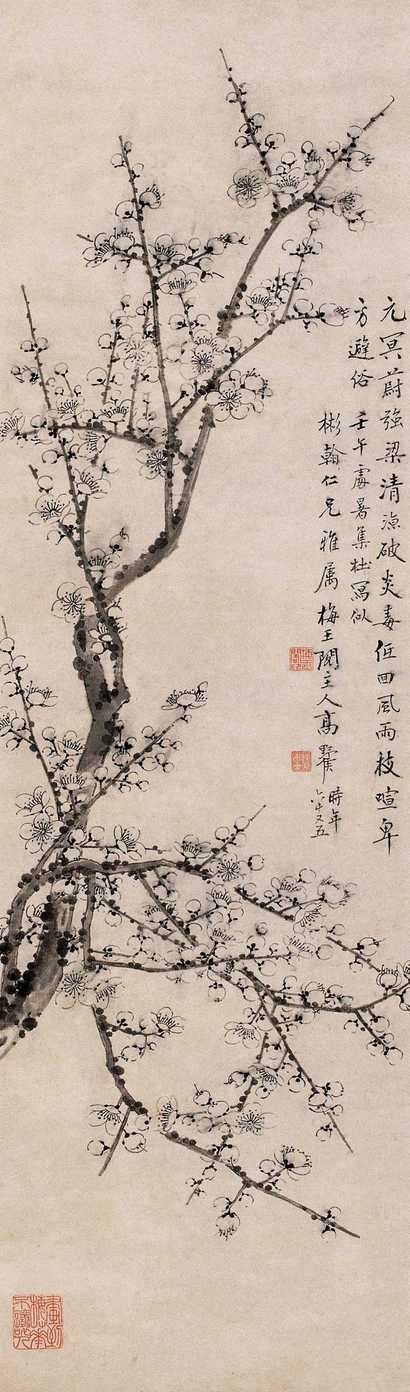 元冥蔚强梁清凉破炎毒低回风雨枝喧卑
方避俗 壬午處暑集杜寫似
彬翰仁兄雅属 梅王閣主人高野侯時年
六十又五